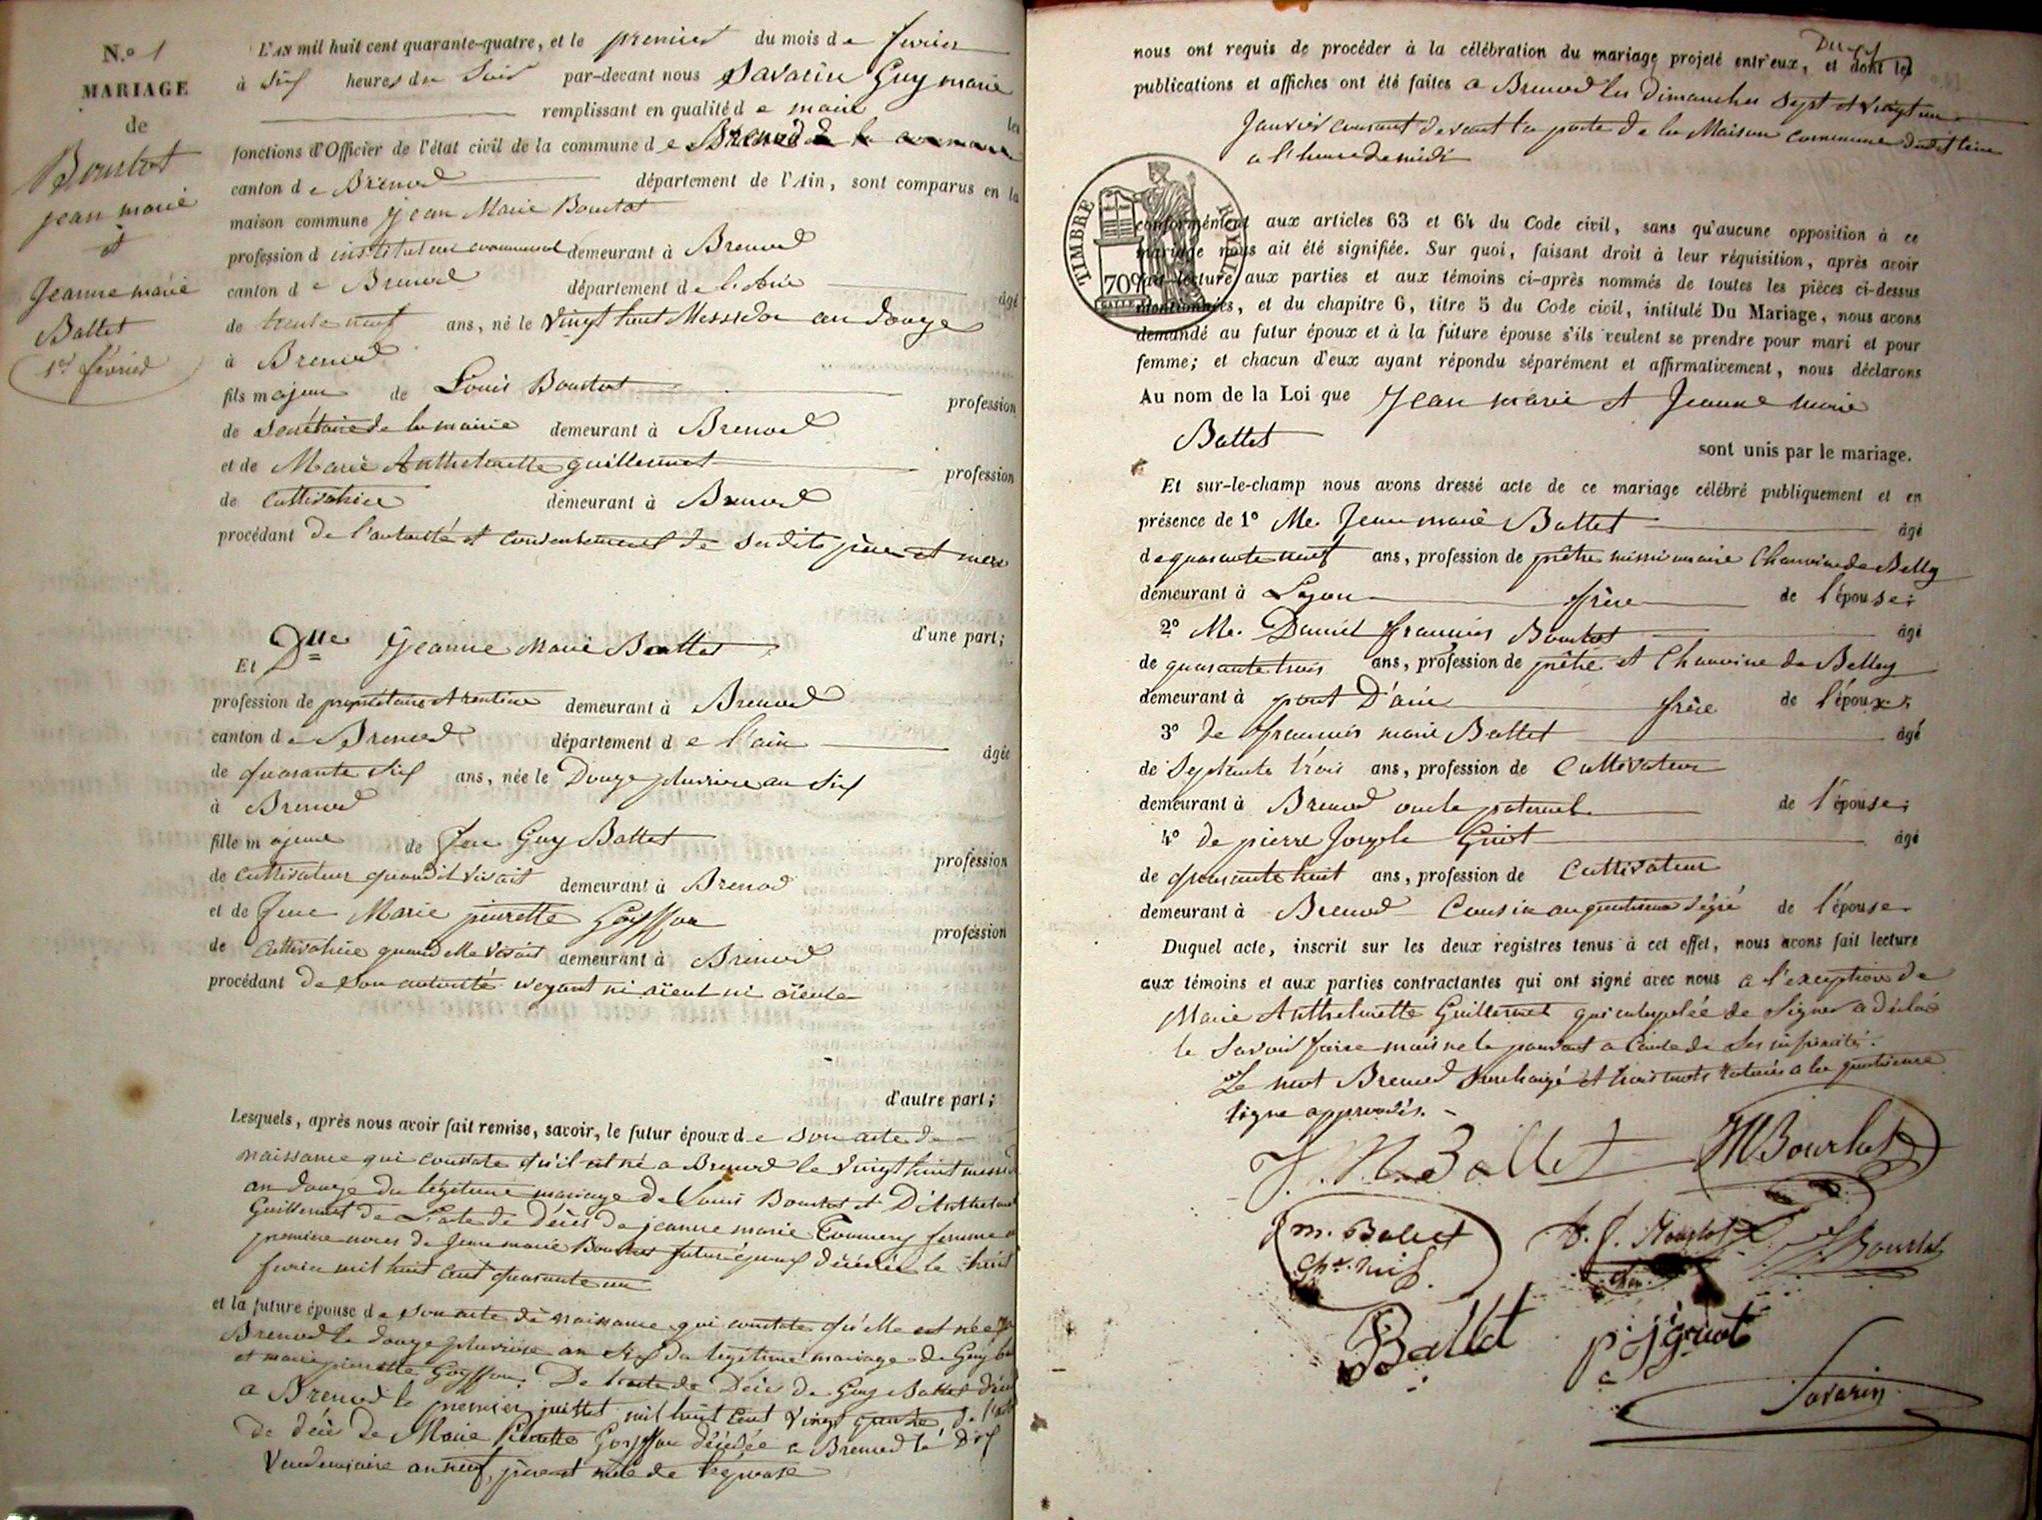 N.o 1
MARIAGE
de
Bourbot
jean marie
et
Jeanne marie
Ballet
1er février
L'AN mil huit cent quarante-quatre, et le premier du mois de février
à Six heures du Soir par-devant nous Savarin Guy marie
remplissant en qualité de maire les
fonctions d'Officier de l'état civil de la commune de Brenod
canton de Brenod département de l'Ain, sont comparus en la
maison commune Jean Marie Bourbot
profession d'instituteur communal demeurant à Brenod
canton de Brenod département de l'Ain âgé
de trente neuf ans, né le Vingt huit Messidor an douze
à Brenod
fils majeur de Louis Bourbot profession
de Secrétaire de la mairie demeurant à Brenod
et de Marie Anthelmette guillermet profession
de cultivatrice demeurant à Brenod
procédant de l'autorité et consentement de ses dits père et mère
d'une part;
Et Dlle Jeanne Marie Ballet
profession de propriétaire et rentière demeurant à Brenod
canton de Brenod département de l'ain âgée
de quarante Six ans, née le Douze pluviose an Six
à Brenod
fille majeure de feu Guy Ballet profession
de cultivateur quand il vivait demeurant à Brenod
et de feue Marie pierrette Goyffon profession
de cultivatrice quand elle vivait demeurant à Brenod
procédant de son autorité n'ayant ni aïeul ni aïeule
d'autre part;
Lesquels, après nous avoir fait remise, savoir, le futur époux de son acte de
naissance qui constate qu'il est né a Brenod le Vingt huit messid
an douze du légitime mariage de Louis Bourbot et D'Anthelm
Guillermet de L'acte de décès de jeanne marie femme
première noces de Jean marie Bourbot futur époux décédée le huit
fevrier mil huit cent quarante un
et la future épouse de son acte de naissance qui constate qu'elle est née
Brenod le douze pluviose an Six du légitime mariage de Guy
et marie pierrette Goyffon. De l'acte de Décès de Guy Ballet
a Brenod le premier juillet mil huit cent Vingt quatre, de
de décès de Marie Pierrette Goyffon décédée a Brenod le Dix
Vendemiaire an neuf, père et mère de l'épouse
nous ont requis de procéder à la célébration du mariage projeté entr'eux, et dont les
publications et affiches ont été faites a Brenod les dimanches Sept et Vingt un
Janvier courant devant la porte de la Maison commune dudit lieu
a l'heure de midi
TIMBRE ROYAL
70c
conformément aux articles 63 et 64 du Code civil, sans qu'aucune opposition à ce
mariage nous ait été signifiée. Sur quoi, faisant droit à leur réquisition, après avoir
fait lecture aux parties et aux témoins ci-après nommés de toutes les pièces ci-dessus
mentionnées, et du chapitre 6, titre 5 du Code civil, intitulé Du Mariage, nous avons
demandé au futur époux et à la future épouse s'ils veulent se prendre pour mari et pour
femme; et chacun d'eux ayant répondu séparément et affirmativement, nous déclarons
Au nom de la Loi que Jean marie et Jeanne marie
Ballet
sont unis par le mariage.
Et sur-le-champ nous avons dressé acte de ce mariage célébré publiquement et en
présence de 1o Mr. Jean marie Ballet âgé
de quarante neuf ans, profession de prêtre missionnaire Chanoine de Belley
demeurant à Lyon frère de l'épouse;
2o Mr. Daniel François Bourbot âgé
de quarante trois ans, profession de prêtre et Chanoine de Belley
demeurant à pont D'ain frère de l'époux;
3o de françois marie Ballet âgé
de Septante trois ans, profession de Cultivateur
demeurant à Brenod oncle paternel de l'épouse;
4o de pierre Joseph Griot âgé
de quarante huit ans, profession de Cultivateur
demeurant à Brenod Cousin au quatrieme dégré de l'épouse.
Duquel acte, inscrit sur les deux registres tenus à cet effet, nous avons fait lecture
aux témoins et aux parties contractantes qui ont signé avec nous a l'exception de
Marie Anthelmette Guillermet qui interpelée de Signer a déclaré
le Savoir faire mais ne le pouvant a Cause de Ses infirmités.
Le mot Brenod Surchargé et trois mots raturés a la quatrieme
ligne approuvés.
J. M. Ballet JM Bourbot
J m. Ballet D. f. Bourbot L Bourbot
Chne. miss. Chan.
Ballet p j griot
Savarin